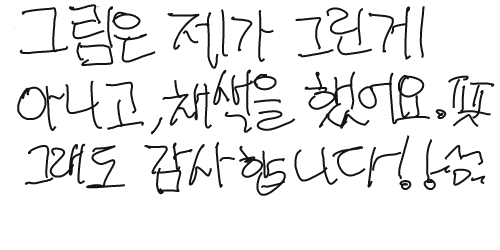 그림은 제가 그린게
아니고, 채색을 했어요. ㅠㅠ
그래도 감사합니다!!